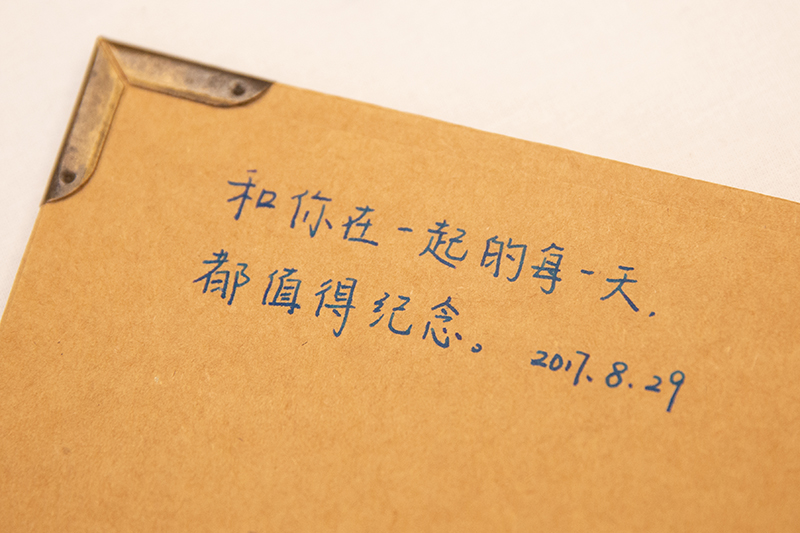 和你在一起的每一天,
都值得纪念。 2017.8.29